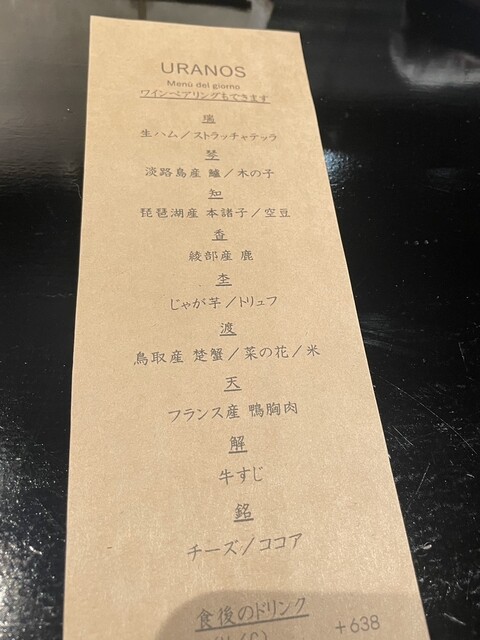 URANOS
Menù del giorno
ワインペアリングもできます
瑞
生ハム／ストラッチャテッラ
琴
淡路島産 鱸／木の子
知
琵琶湖産 本諸子／空豆
香
綾部産 鹿
杢
じゃが芋／トリュフ
渡
鳥取産 楚蟹／菜の花／米
天
フランス産 鴨胸肉
解
牛すじ
銘
チーズ／ココア
食後のドリンク
+638